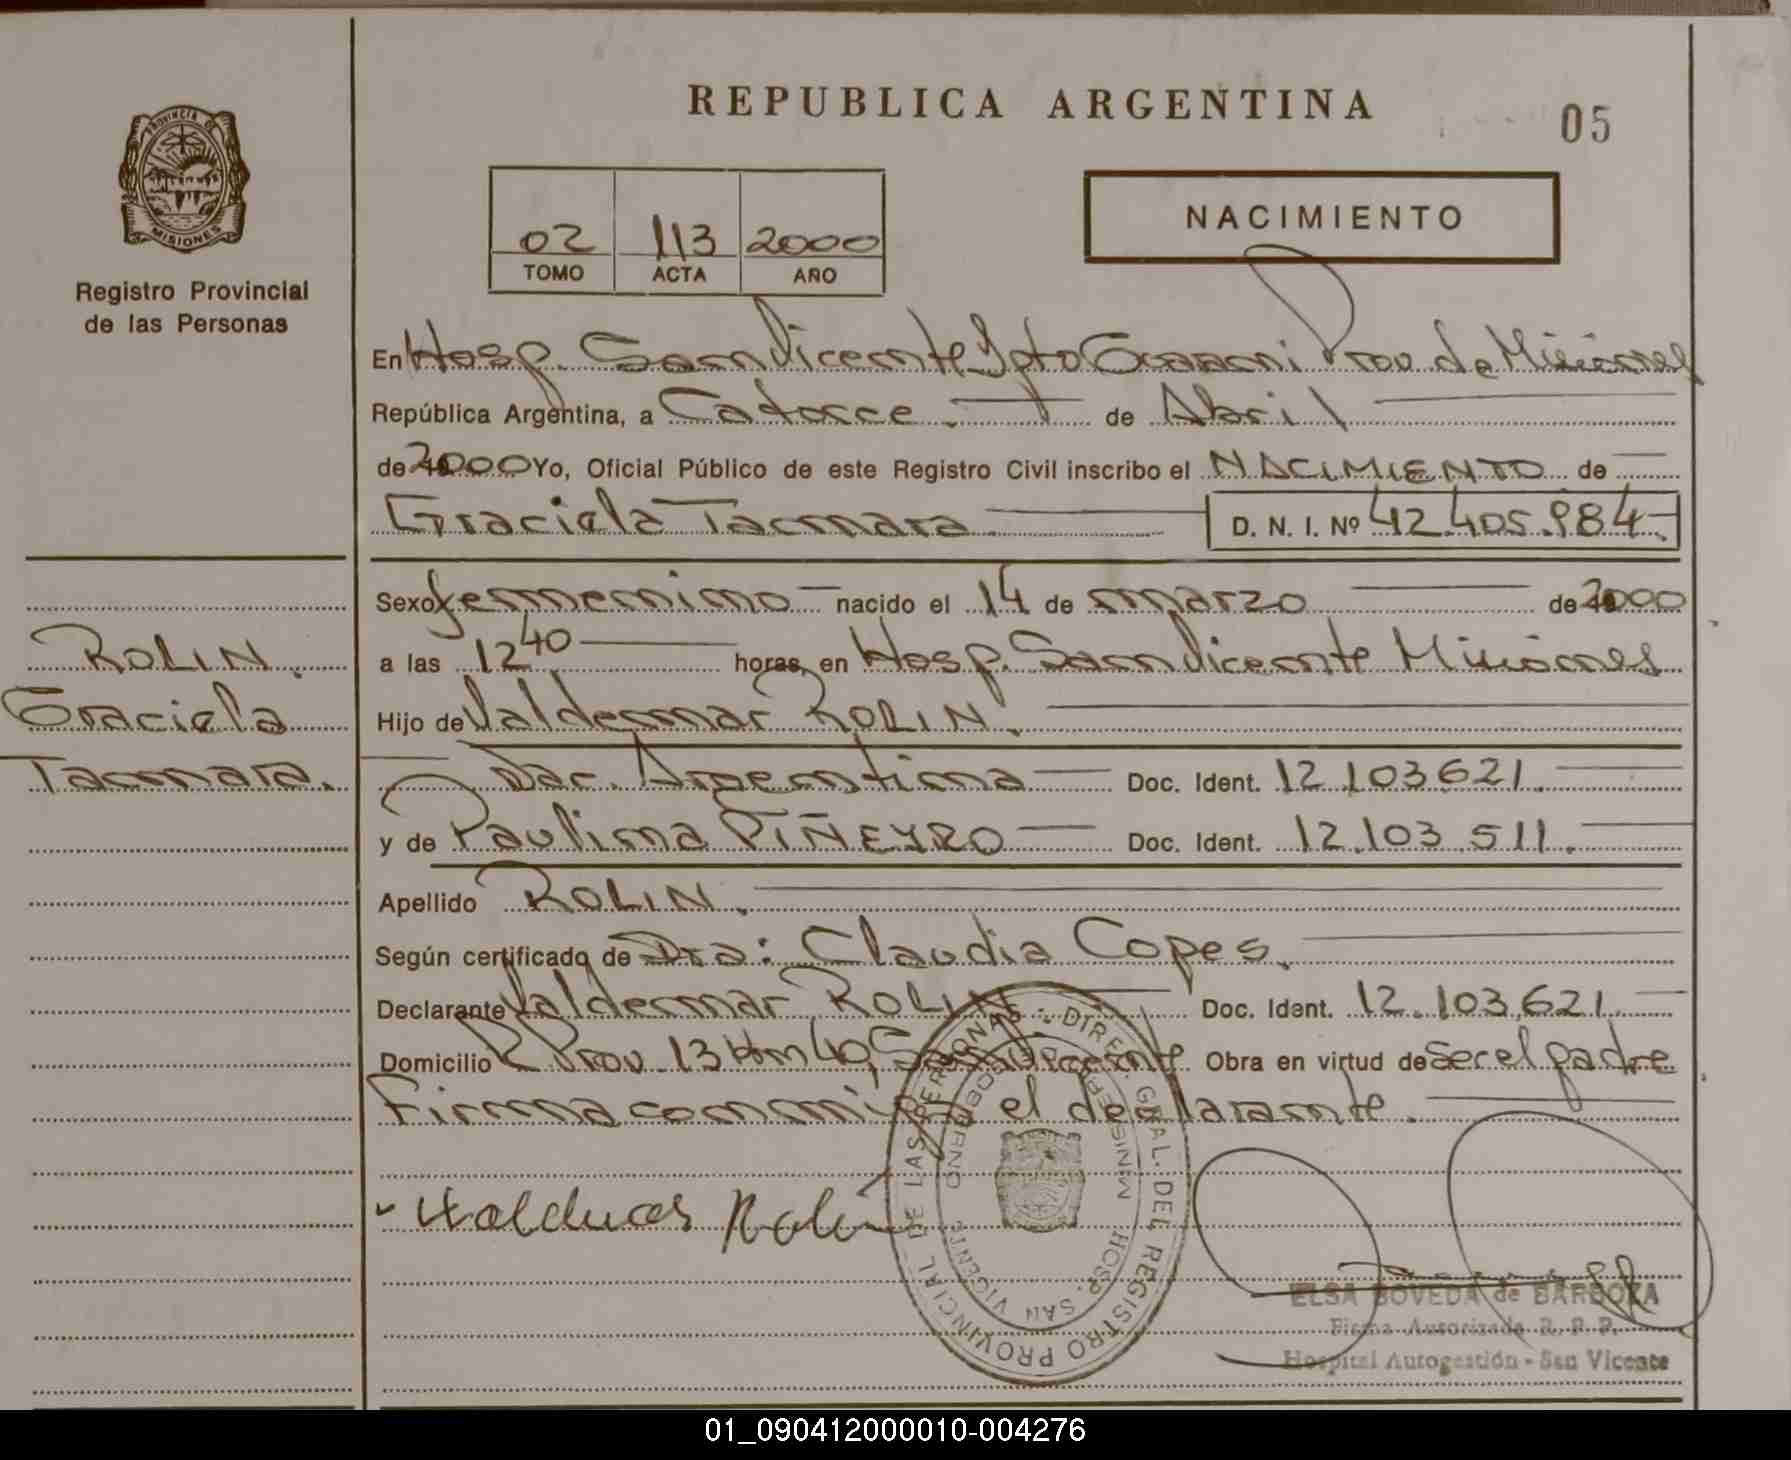 REPUBLICA ARGENTINA
05
PROVINCIA DE
MISIONES
Registro Provincial
de las Personas
02 113 2000
TOMO ACTA AÑO
NACIMIENTO
En Hosp. San Vicente Dpto Guarani Prov. de Misiones
República Argentina, a Catorce de Abril
de 2000 Yo, Oficial Público de este Registro Civil inscribo el NACIMIENTO de
Graciela Tamara D. N. I. Nº 42.405.984
Sexo femenino nacido el 14 de marzo de 2000
a las 12 40 horas, en Hosp. San Vicente Misiones
Hijo de Valdemar ROLIN.
Nac. Argentina Doc. Ident. 12.103.621.
y de Paulina PIÑEYRO Doc. Ident. 12.103.511.
Apellido ROLIN.
Según certificado de Dra: Claudia Copes.
Declarante Valdemar ROLIN Doc. Ident. 12.103.621.
Domicilio R. Prov. 13 Km 40, San Vicente Obra en virtud de ser el padre
Firma conmigo el declarante.
ROLIN.
Graciela
Tamara.
DIREC. GRAL. DEL REGISTRO PROVINCIAL DE LAS PERSONAS
HOSP. SAN VICENTE
ELSA BOVEDA de BARBOZA
Firma Autorizada R. P. P.
Hospital Autogestión - San Vicente
01_090412000010-004276